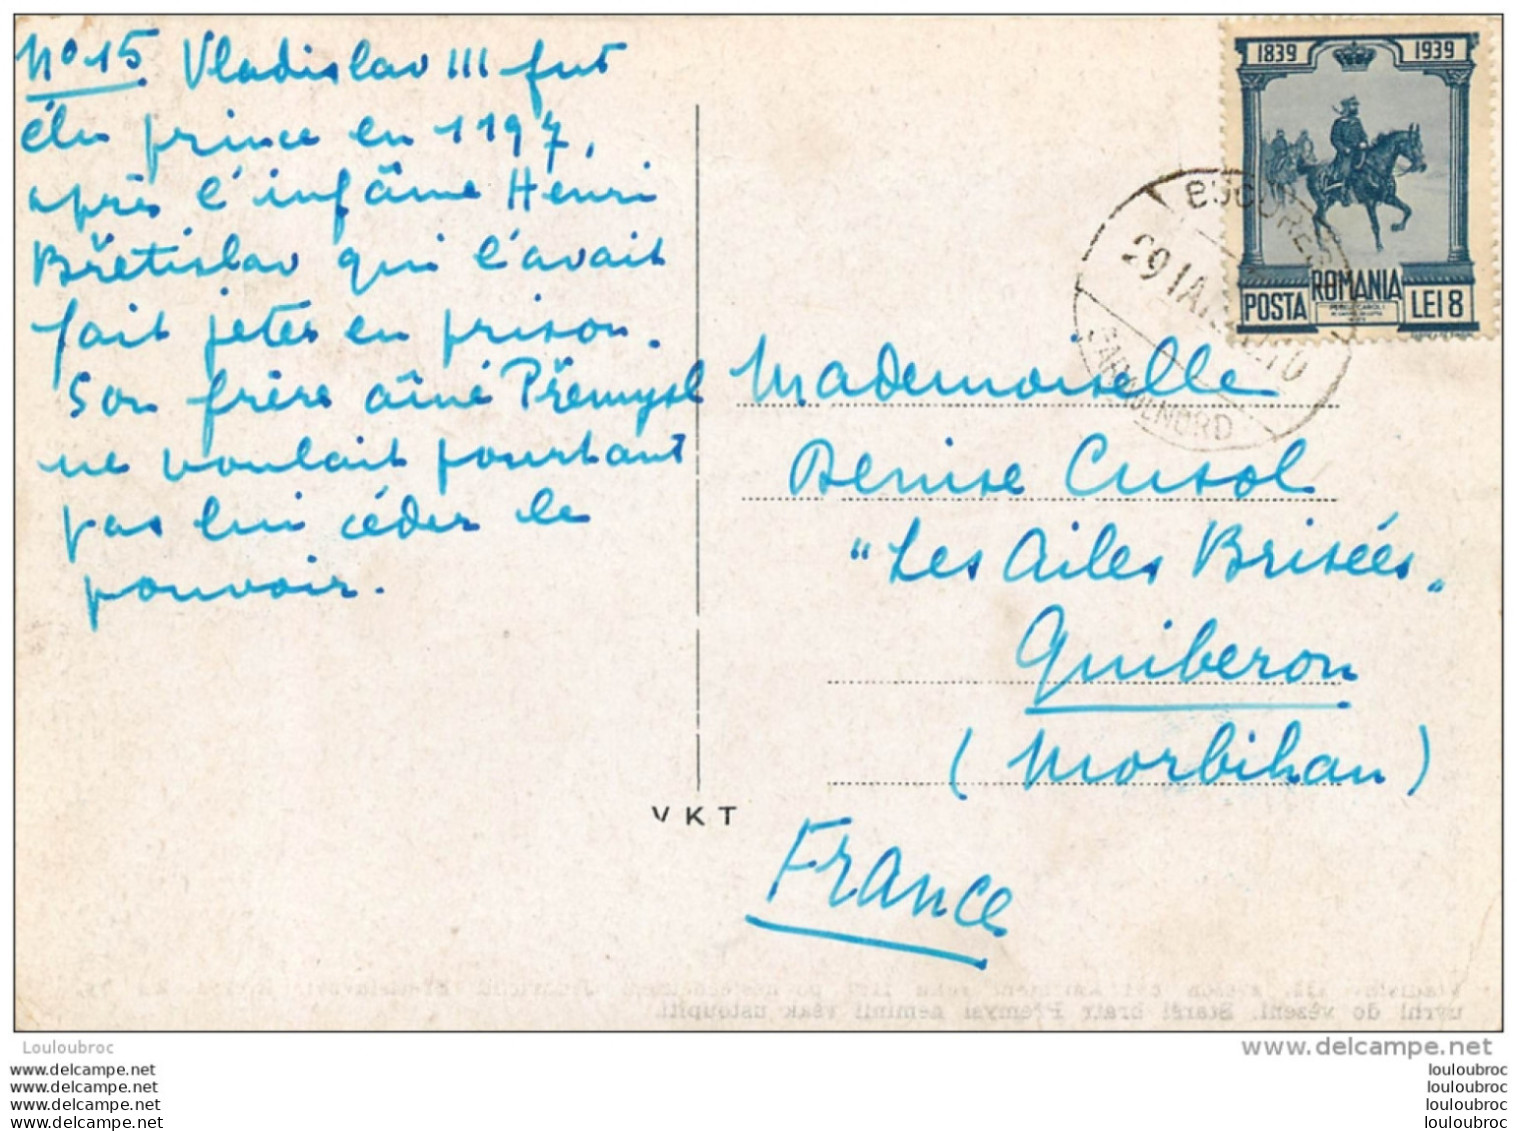 No 15 Vladislav III fut
élu prince en 1197,
après l'infâme Henri
Břetislav qui l'avait
fait jeter en prison.
Son frère aîné Přemysl
ne voulait pourtant
pas lui céder le
pouvoir.
1839 1939
POSTA ROMANIA LEI 8
Mademoiselle
Denise Cusol
"Les Ailes Brisées"
Quiberon
(Morbihan)
France
VKT
uvrhl do vězení. Starší bratr Přemysl nemínil však ustoupiti.
Louloubroc
www.delcampe.net
www.delcampe.net
www.delcampe.net
www.delcampe.net
www.delcampe.net
louloubroc
louloubroc
louloubroc
louloubroc